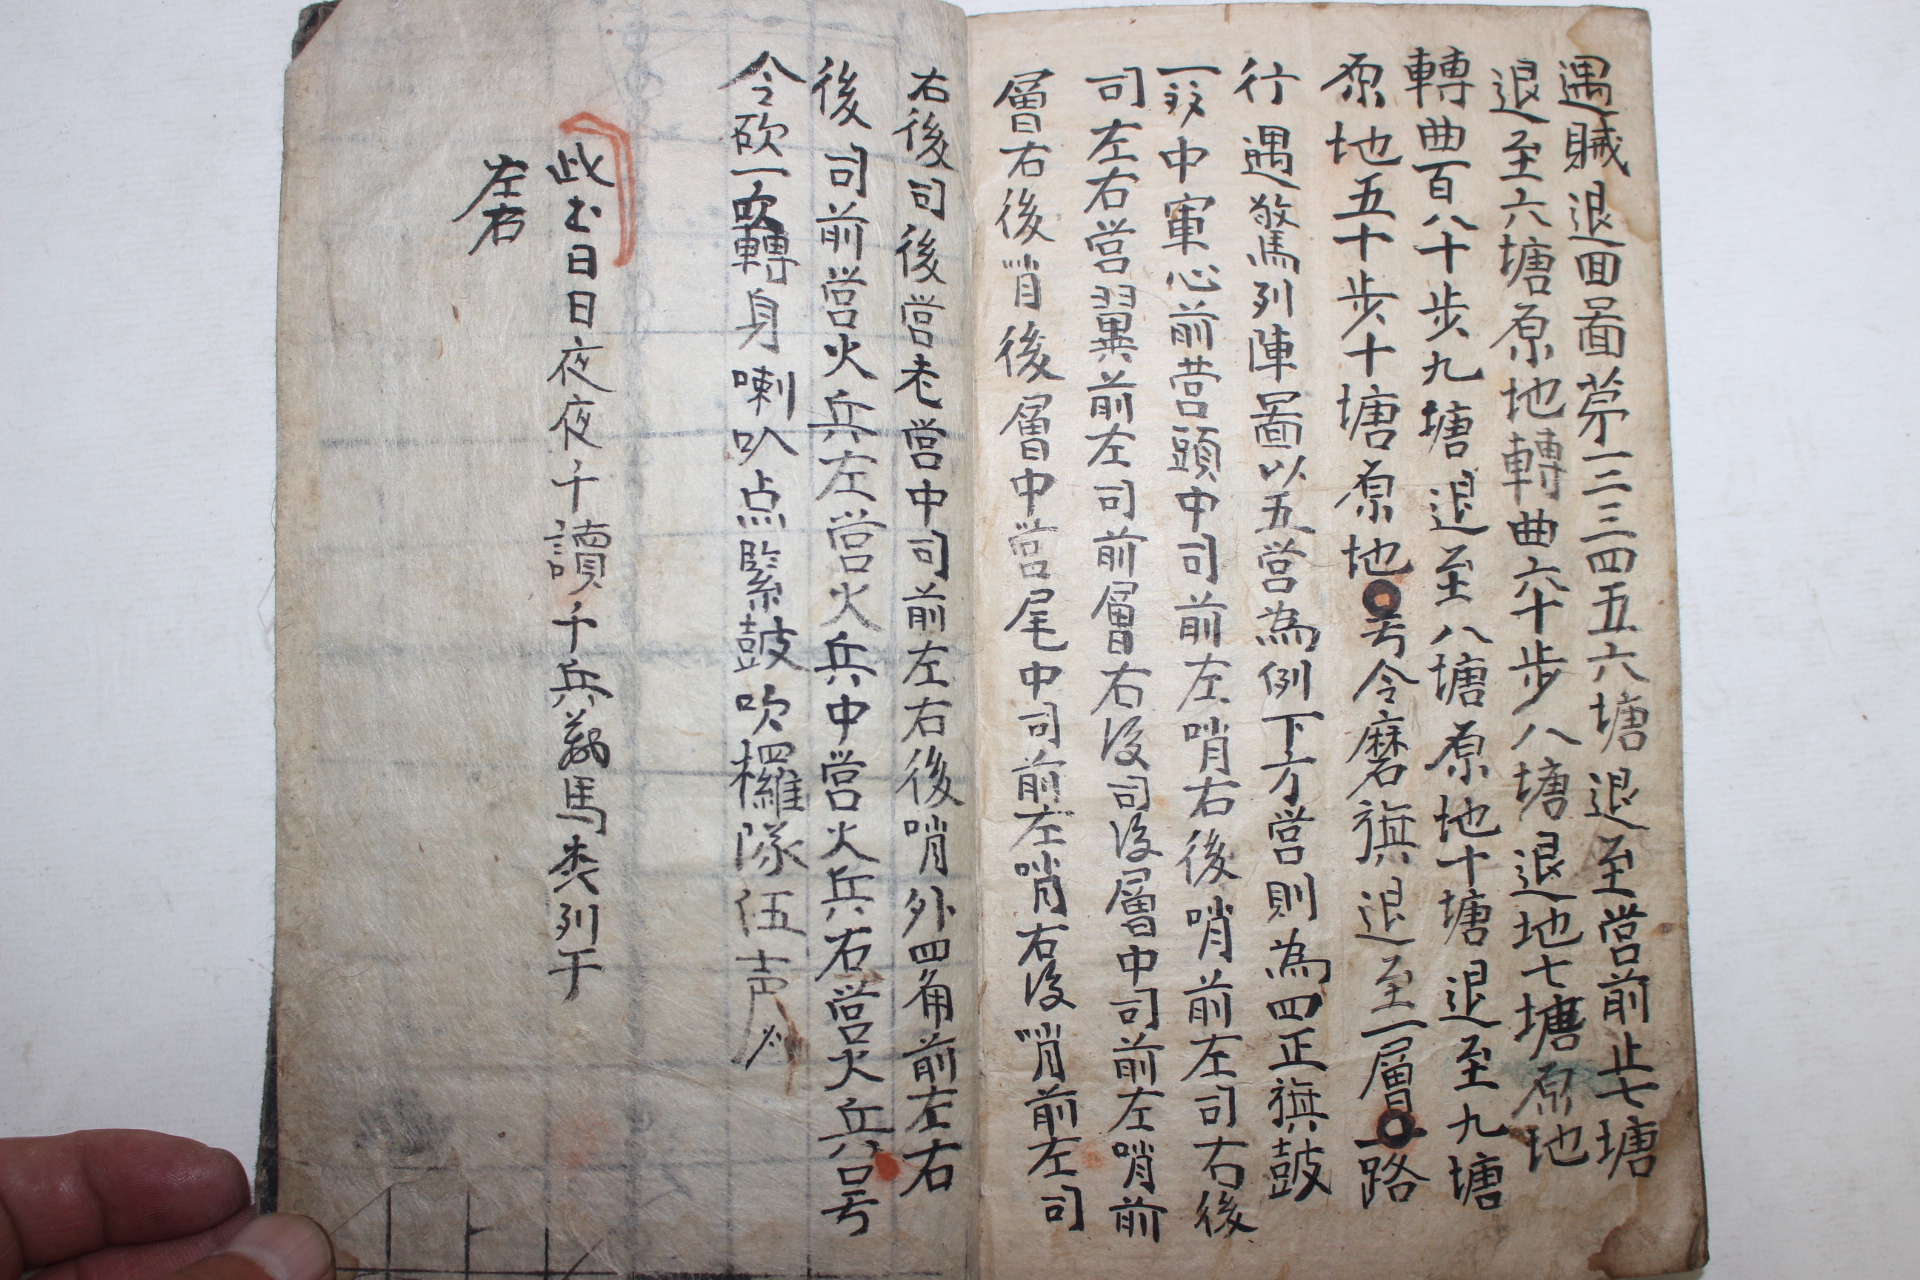 遇賊退面啚苐一二三四五六塘退至営前止七塘
退至六塘原地轉曲六十步八塘退地七塘原地
轉曲百八十步九塘退至八塘原地十塘退至九塘
原地五十步十塘原地号令磨旗退至一層一路
行遇驚列陣啚以五営為例下方営則為四正旗鼓
中軍心前営頭中司前左哨右後哨前左司右後
司左右営翼前左司前層右后司后層中司前左哨前
層右後哨後層中営尾中司前左哨右後哨前左司
右後司後営老営中司前左右後哨外四角前左右
後司前営火兵左営火兵中営火兵右営火兵号
令砍一吹轉身喇叭点緊鼓吹欏隊伍声
此日日夜夜千讀千兵馬类列于
左右